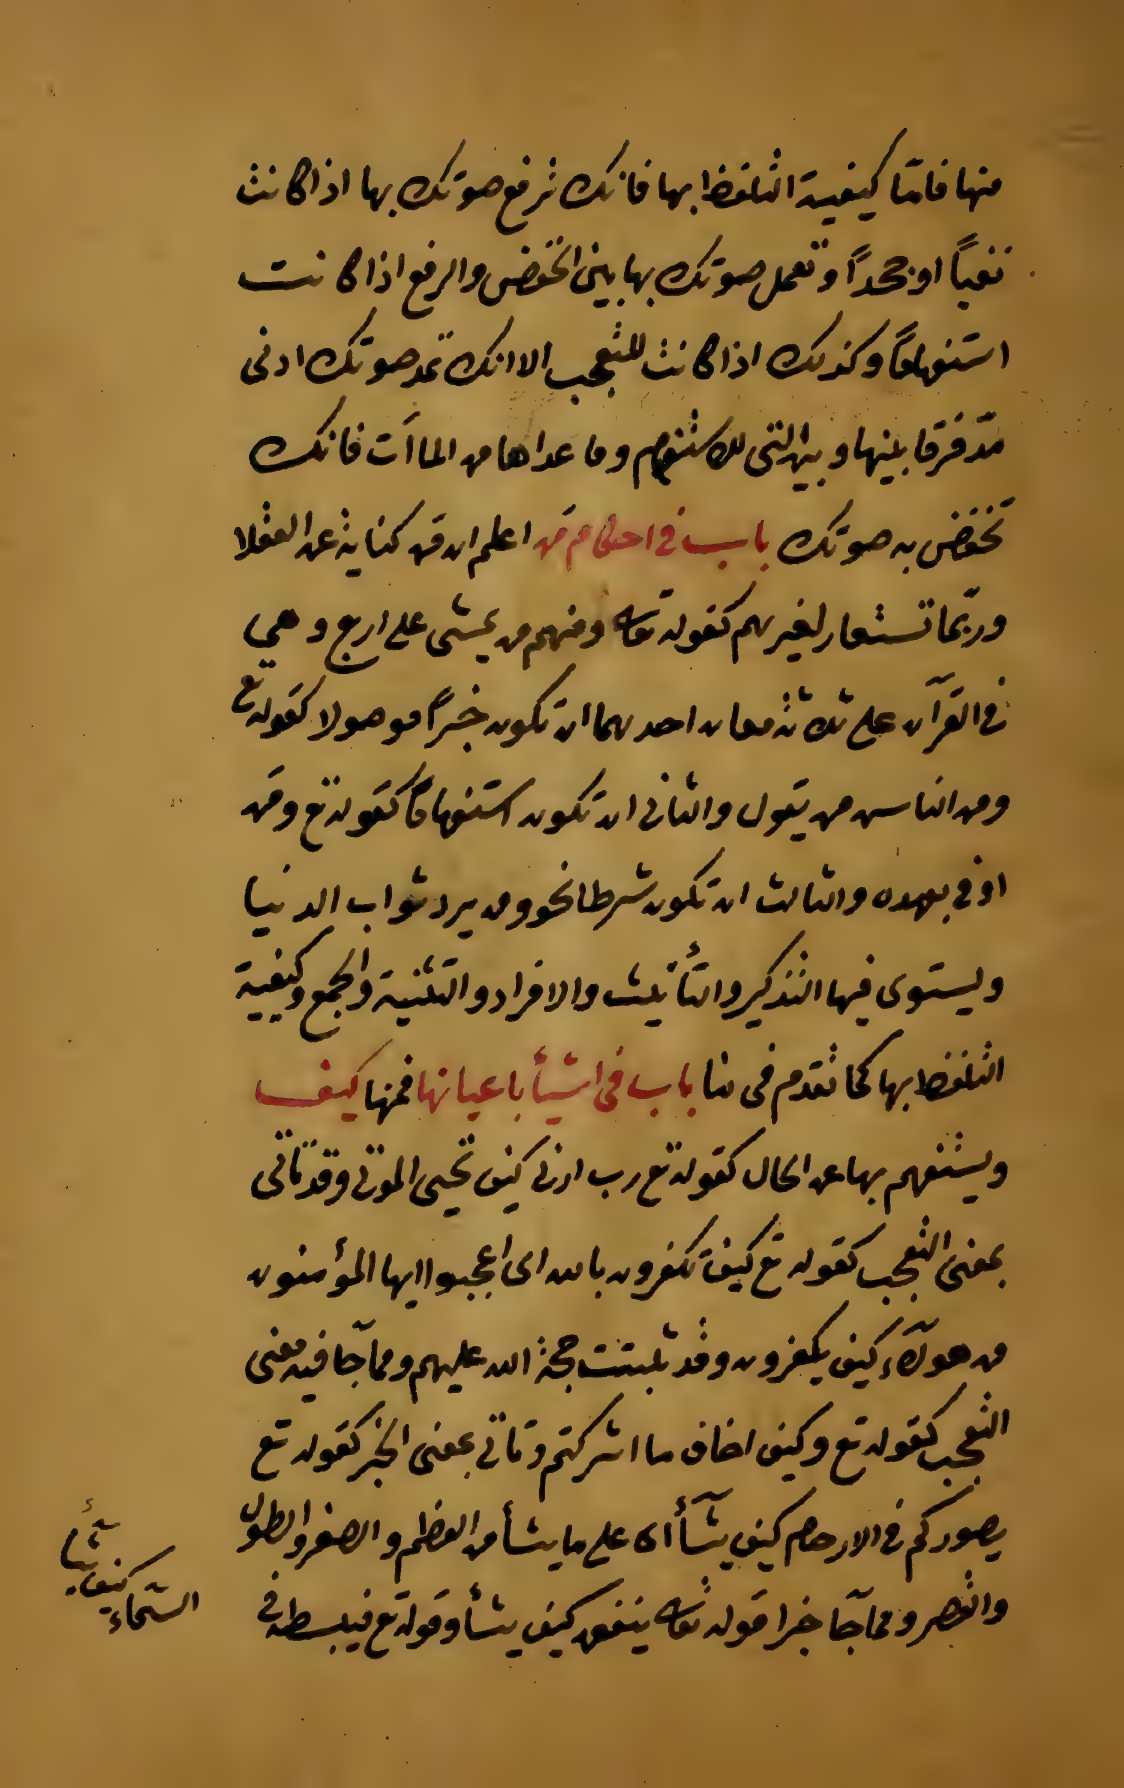 منها فاما كيفية التلفظ بها فانك ترفع صوتك بها اذا كانت
نفياً او جحداً وتعمل صوتك بها بين الخفض والرفع اذا كانت
استفهاماً وكذلك اذا كانت للتعجب الا انك تمد صوتك ادنى
مدّ فرقا بينها وبين التي للاستفهام وما عداها من الماآت فانك
تخفض به صوتك باب في احكام مَن اعلم ان مَن كناية عن العقلا
وربّما تستعار لغيرهم كقوله تعالى ومنهم من يمشى على اربع وهي
في القرآن على ثلاثة معان احدهما ان تكون خبراً موصولا كقوله تع
ومن الناس من يقول والثاني ان تكون استفهاماً كقوله تع ومَن
اوفى بعهده والثالث ان تكون شرطا نحو ومن يرد ثواب الدنيا
ويستوى فيها التذكير والتأنيث والافراد والتثنية والجمع وكيفية
التلفظ بها كما تقدم في ما باب في اشيأ باعيانها فمنها كيف
ويستفهم بها عن الحال كقوله تع رب ارنى كيف تحيى الموتى وقد تاتى
بمعنى التعجب كقوله تع كيف تكفرون بالله اى اعجبوا ايها المؤمنون
من هولآء كيف يكفرون وقد ثبتت حجة الله عليهم ومما جآ فيه معنى
التعجب كقوله تع وكيف اخاف ما اشركتم وتاتى بمعنى الخبر كقوله تع
يصوركم فى الارحام كيف يشآأ اى على ما يشأ من العظم والصغر والطول
والقصر ومما جآ خبرا قوله تعالى ينفق كيف يشأ وقوله تع فيبسطه في
السّماء كيف يشأ